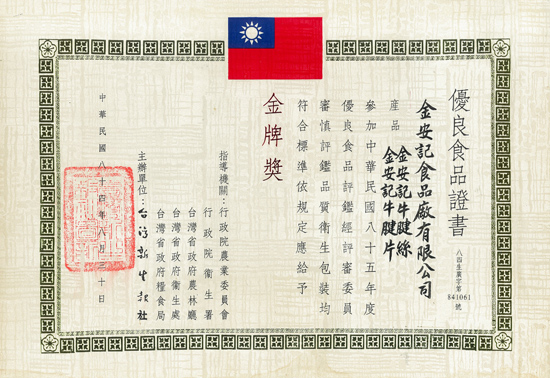 優良食品證書
八四生廣字第841061號
金安記食品廠有限公司
產品 金安記牛腱絲
金安記牛腱片
參加中華民國八十五年度
優良食品評鑑經評審委員
審慎評鑑品質衛生包裝均
符合標準依規定應給予
金牌獎
指導機關：行政院農業委員會
行政院衞生署
台灣省政府農林廳
台灣省政府衞生處
台灣省政府糧食局
主辦單位：台灣新生報社
中華民國八十四年八月三十日